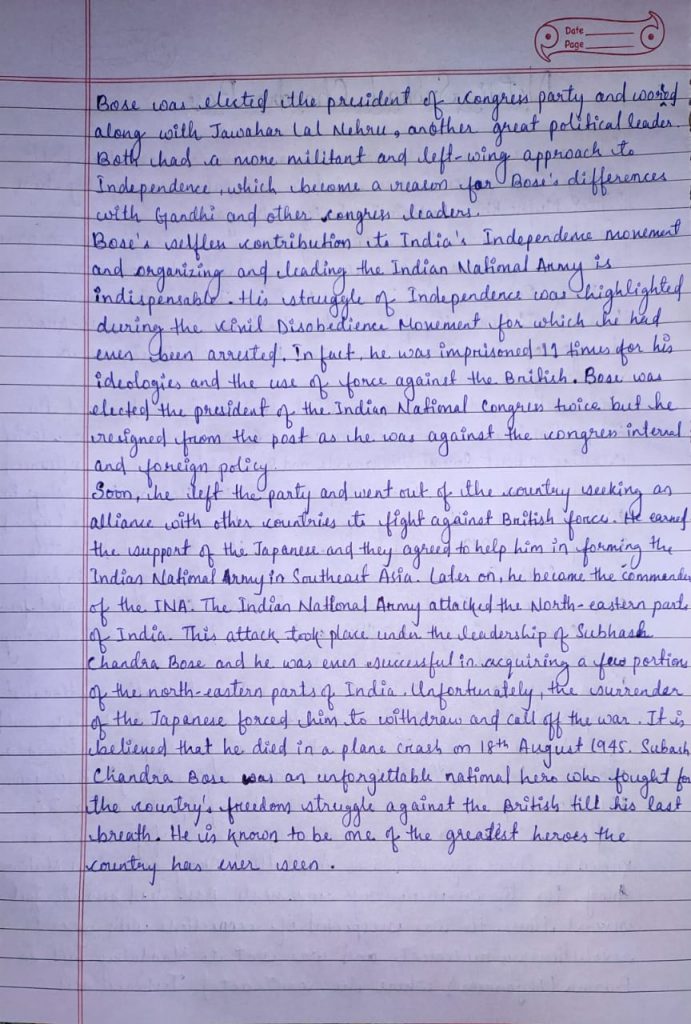 Date
Page
Bose was elected the president of Congress party and worked
along with Jawahar Lal Nehru, another great political leader.
Both had a more militant and left-wing approach to
Independence, which become a reason for Bose's differences
with Gandhi and other congress leaders.
Bose's selfless contribution to India's Independence movement
and organizing and leading the Indian National Army is
indispensable. His struggle of Independence was highlighted
during the Civil Disobedience Movement for which he had
even been arrested. In fact, he was imprisoned 11 times for his
ideologies and the use of force against the British. Bose was
elected the president of the Indian National Congress twice but he
resigned from the post as he was against the congress internal
and foreign policy.
Soon, he left the party and went out of the country seeking an
alliance with other countries to fight against British force. He earned
the support of the Japanese and they agreed to help him in forming the
Indian National Army in Southeast Asia. Later on, he became the commander
of the INA. The Indian National Army attacked the North-eastern parts
of India. This attack took place under the leadership of Subhash
Chandra Bose and he was even successful in acquiring a few portions
of the north-eastern parts of India. Unfortunately, the surrender
of the Japanese forced him to withdraw and call off the war. It is
believed that he died in a plane crash on 18th August 1945. Subash
Chandra Bose was an unforgettable national hero who fought for
the country's freedom struggle against the British till his last
breath. He is known to be one of the greatest heroes the
country has ever seen.